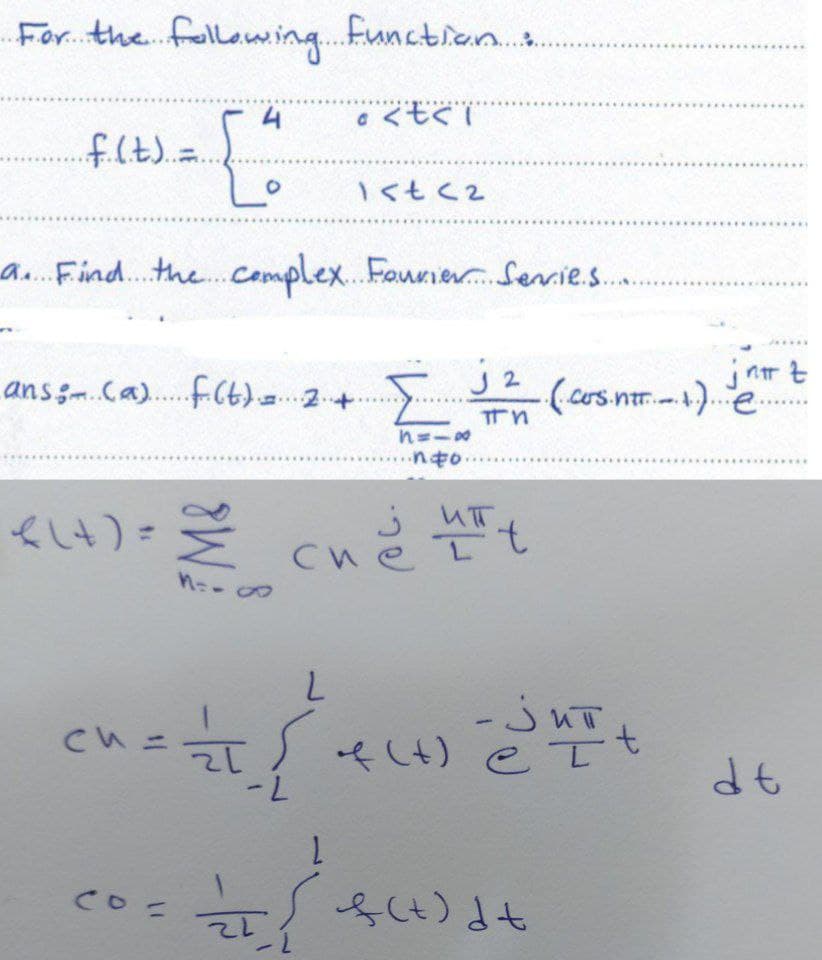 For the following function :
f(t) = { 4 0<t<1
0 1<t<2
a. Find the complex Fourier Servies.
ans:- (a) f(t) = 2 + ∑ n=-∞ n≠0 j2/πn (cos nπ - 1) e^jnπt
f(t) = ∑ n=-∞ ∞ cn e^j nπ/L t
cn = 1/2L ∫ -L L f(t) e^-j nπ/L t dt
co = 1/2L ∫ -L L f(t) dt